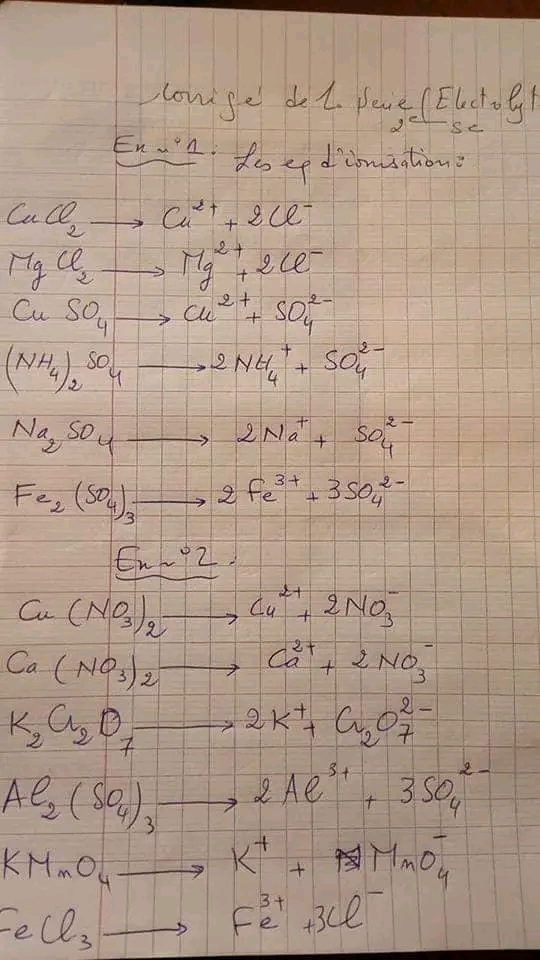 Corrigé de la série (Electrolyt
2e Sc
Ex n°1: Les eq d'ionisation:
CuCl₂ → Cu²⁺ + 2Cl⁻
MgCl₂ → Mg²⁺ + 2Cl⁻
CuSO₄ → Cu²⁺ + SO₄²⁻
(NH₄)₂SO₄ → 2NH₄⁺ + SO₄²⁻
Na₂SO₄ → 2Na⁺ + SO₄²⁻
Fe₂(SO₄)₃ → 2Fe³⁺ + 3SO₄²⁻
Ex n°2:
Cu(NO₃)₂ → Cu²⁺ + 2NO₃⁻
Ca(NO₃)₂ → Ca²⁺ + 2NO₃⁻
K₂Cr₂O₇ → 2K⁺ + Cr₂O₇²⁻
Al₂(SO₄)₃ → 2Al³⁺ + 3SO₄²⁻
KMnO₄ → K⁺ + MnO₄⁻
FeCl₃ → Fe³⁺ + 3Cl⁻